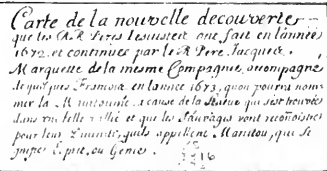 Carte de la nouvelle decouverte
que les RR Peres Iesuistes ont fait en l'année
1672 et continuée par le R Pere Iacques
Marquette de la mesme Compagnie, accompagné
de quelques François en l'année 1673, qu'on pourra nom-
mer la a cause de la Statue qui s'est trouvée
dans belle et que les Sauvages vont reconnoistre
pour leur qu'ils appellent Manitou, que Se
Esprit, ou Genies.
16